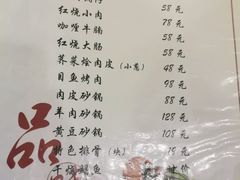 红烧小肉 58元
咖喱牛腩 78元
红烧大肠 58元
荠菜烩肉皮(小葱) 48元
目鱼烤肉 98元
肉皮砂锅 88元
羊肉砂锅 128元
黄豆砂锅 108元
特色排骨(块) 19元
干烧鲳鱼
品